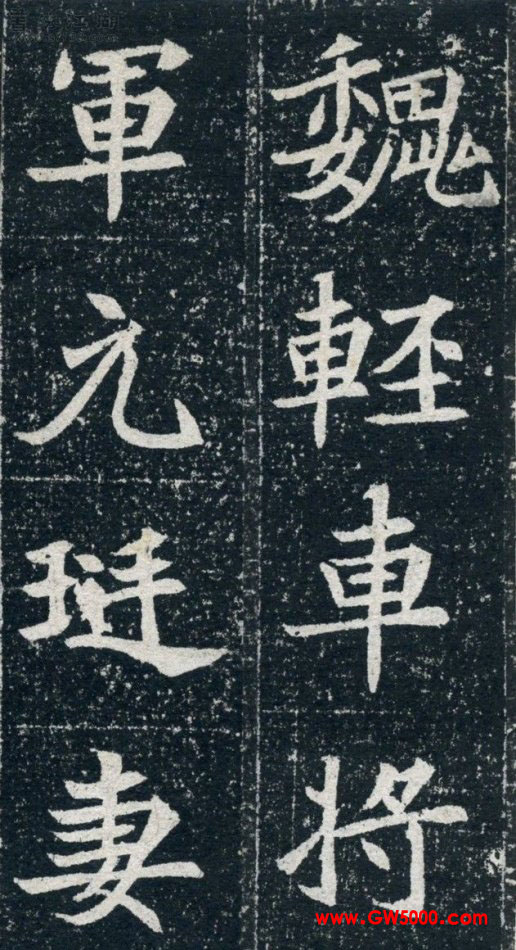 魏輕車將
軍元珽妻
www.GW5000.com